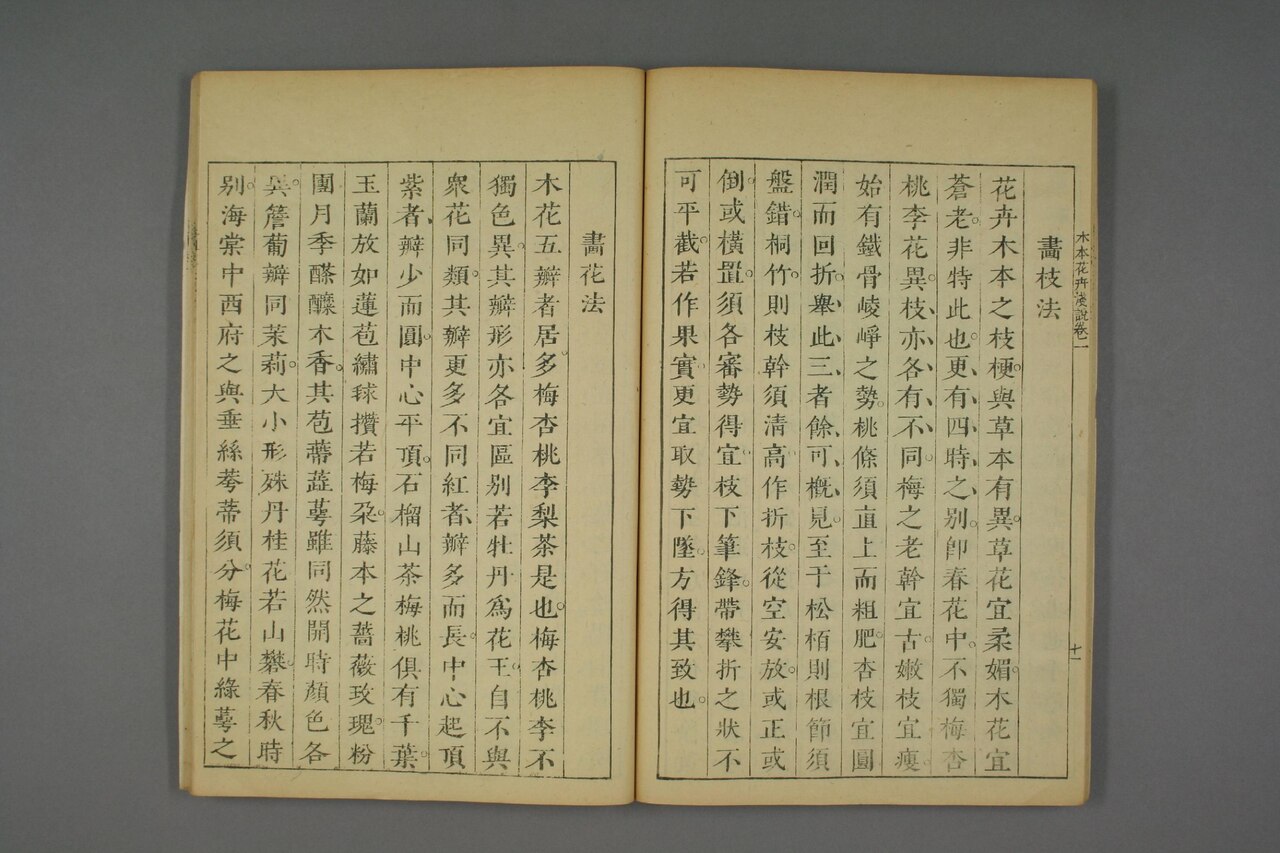 木本花卉淺說卷一
十一
畫枝法
花卉木本之枝梗。與草本有異。草花宜柔媚。木花宜
蒼老。非特此也。更、有、四、時、之、别。卽春花中。不獨梅杏
桃李花異。枝、亦、各、有、不、同。梅之老幹宜古。嫩枝宜瘦。
始有鐵骨崚崢之勢。桃條須直上而粗肥。杏枝宜圓
潤而回折。舉、此、三、者、餘、可、概、見。至于松栢則根節須
盤錯。桐竹。則枝幹須清高。作折枝。從空安放。或正或
倒。或橫置。須各審勢得宜。枝下筆鋒。帶攀折之狀。不
可平截。若作果實。更宜取勢下墜。方得其致也。
畫花法
木花五瓣者居多。梅杏桃李梨茶是也。梅杏桃李不
獨色異。其瓣形亦各宜區别。若牡丹爲花王。自不與
衆花同類。其瓣更多不同。紅者、瓣多而長。中心起頂
紫者、瓣少而圓。中心平頂。石榴山茶梅桃俱有千葉。
玉蘭放如蓮。苞繡毬攢若梅朶。藤本之薔薇玫瑰。粉
團月季酴醿木香。其苞蒂蕋萼雖同。然開時顏色各
異。簷蔔瓣同茉莉。大小形殊。丹桂花若山礬。春秋時
别。海棠中西府之與垂絲。萼蒂須分。梅花中綠萼之